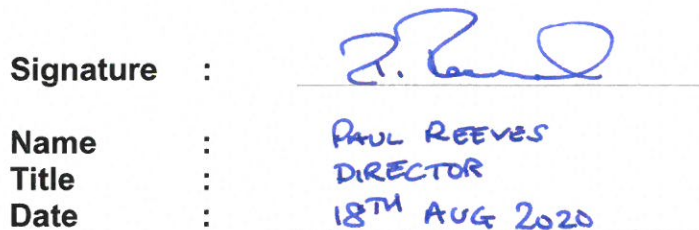 Signature :
Name : PAUL REEVES
Title : DIRECTOR
Date : 18TH AUG 2020